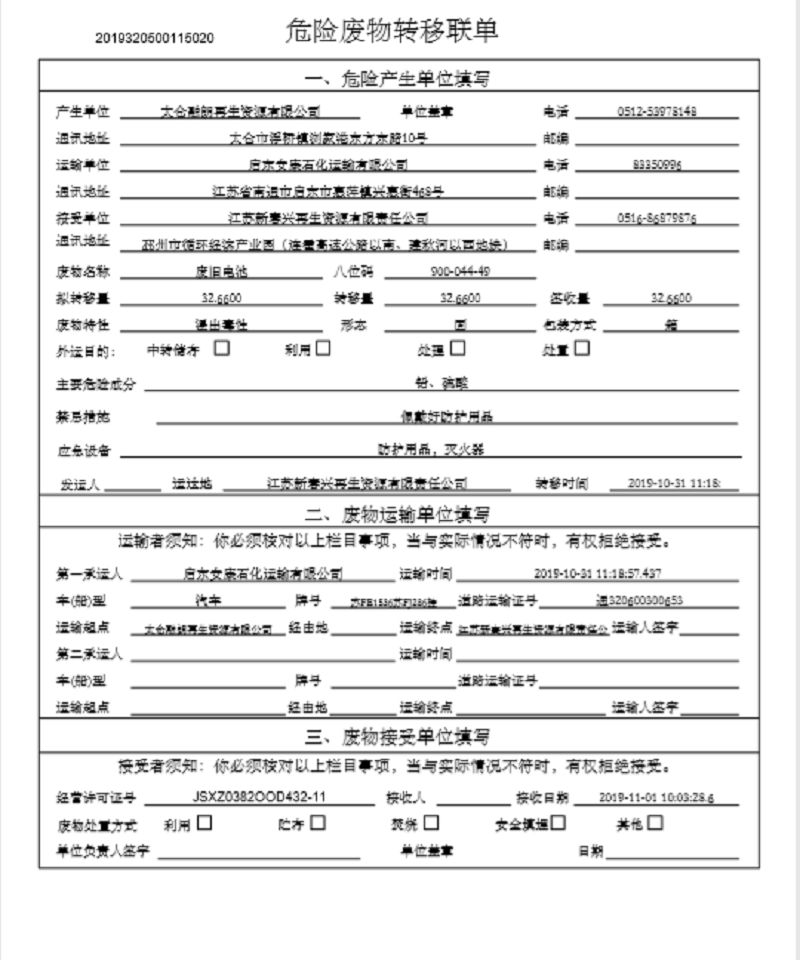 2019320500115020 危险废物转移联单
一、危险产生单位填写
产生单位 太仓融朗再生资源有限公司 单位盖章 电话 0512-53978148
通讯地址 太仓市浮桥镇浏家港东方东路10号 邮编
运输单位 启东安康石化运输有限公司 电话 83350996
通讯地址 江苏省南通市启东市惠萍镇兴惠街468号 邮编
接受单位 江苏新春兴再生资源有限责任公司 电话 0516-86879876
通讯地址 邳州市循环经济产业园（连霍高速公路以南、建秋河以西地块） 邮编
废物名称 废旧电池 八位码 900-044-49
拟转移量 32.6600 转移量 32.6600 签收量 32.6600
废物特性 浸出毒性 形态 固 包装方式 箱
外运目的： 中转储存 利用 处理 处置
主要危险成分 铅、硫酸
禁忌措施 佩戴好防护用品
应急设备 防护用品，灭火器
发运人 运达地 江苏新春兴再生资源有限责任公司 转移时间 2019-10-31 11:18:
二、废物运输单位填写
运输者须知：你必须核对以上栏目事项，当与实际情况不符时，有权拒绝接受。
第一承运人 启东安康石化运输有限公司 运输时间 2019-10-31 11:18:57.437
车(船)型 汽车 牌号 道路运输证号 通320600300653
运输起点 太仓融朗再生资源有限公司 经由地 运输终点 江苏新春兴再生资源有限责任公 运输人签字
第二承运人 运输时间
车(船)型 牌号 道路运输证号
运输起点 经由地 运输终点 运输人签字
三、废物接受单位填写
接受者须知：你必须核对以上栏目事项，当与实际情况不符时，有权拒绝接受。
经营许可证号 JSXZ0382OOD432-11 接收人 接收日期 2019-11-01 10:03:28.6
废物处置方式 利用 贮存 焚烧 安全填埋 其他
单位负责人签字 单位盖章 日期